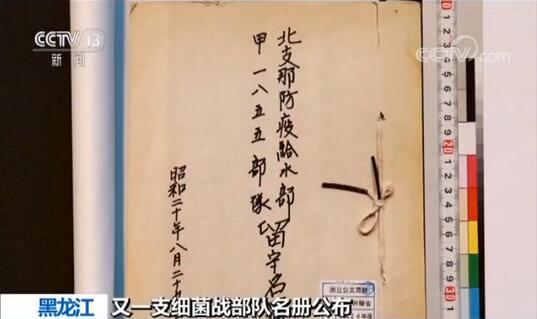 CCTV 13
新闻
CCTV.com
北支那防疫給水部
甲一八五五部隊留守名
昭和二十年八月二十
国立公文書館
黑龙江 又一支细菌战部队名册公布
10
20